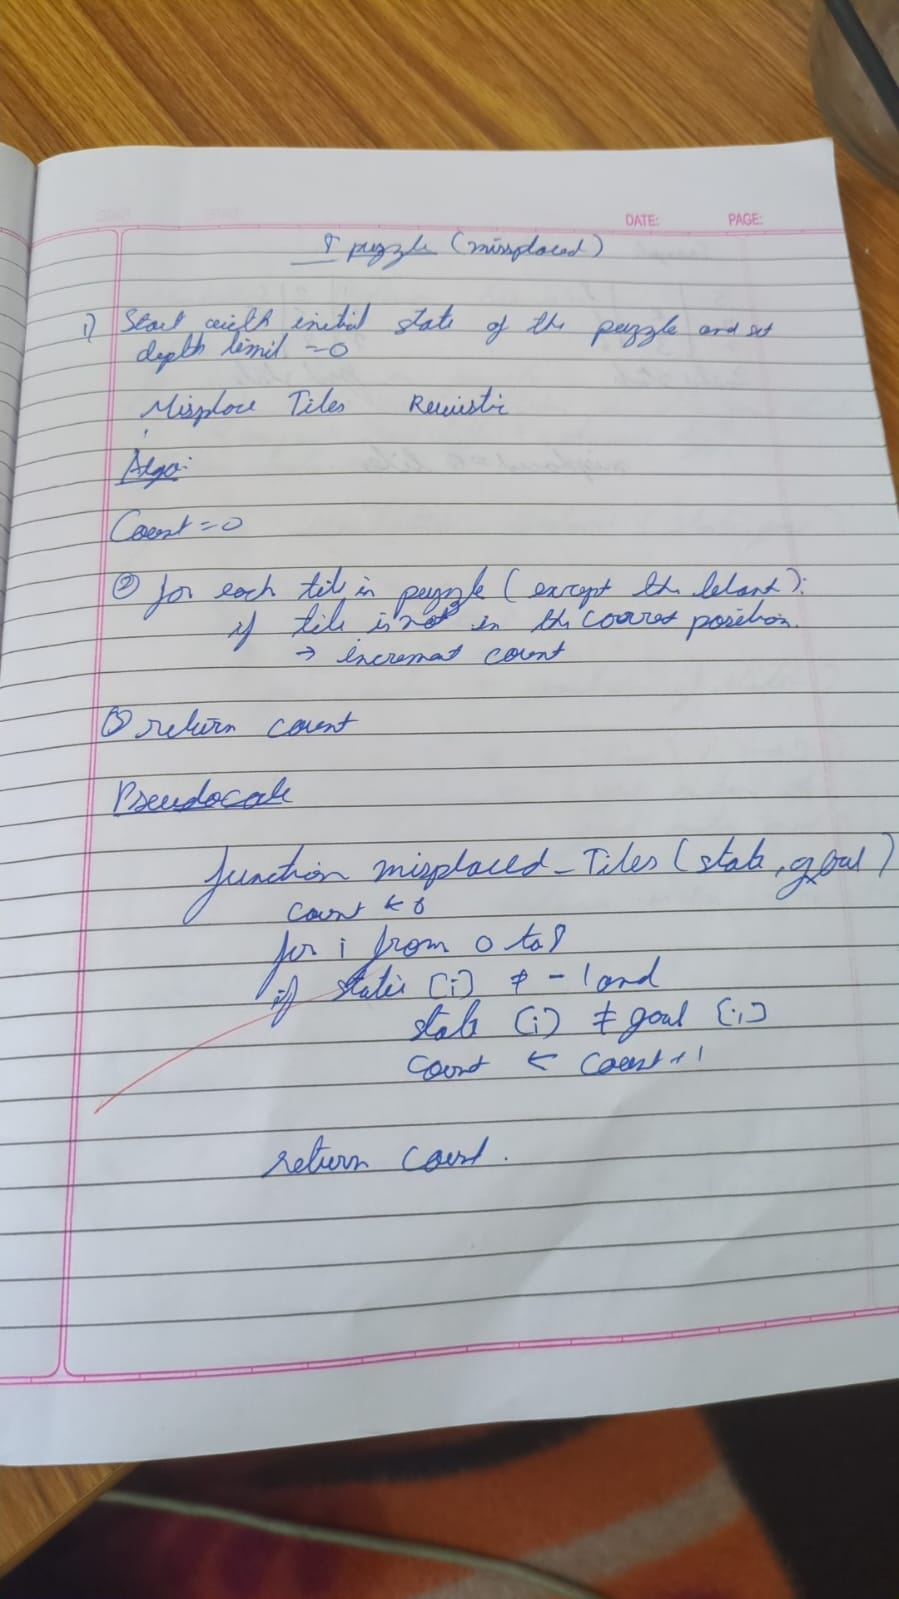 DATE: PAGE:
8 puzzle (missplaced)
1) Start with initial state of the puzzle and set
depth limit = 0
Misplace Tiles
Algo:
Count = 0
② for each tile in puzzle (except the blank):
if tile is not in the correct position.
→ increment count
③ return count
Pseudocode
function misplaced_Tiles (state, goal)
count ← 0
for i from 0 to 8
if state [i] ≠ -1 and
state [i] ≠ goal [i]
count ← count + 1
return count.